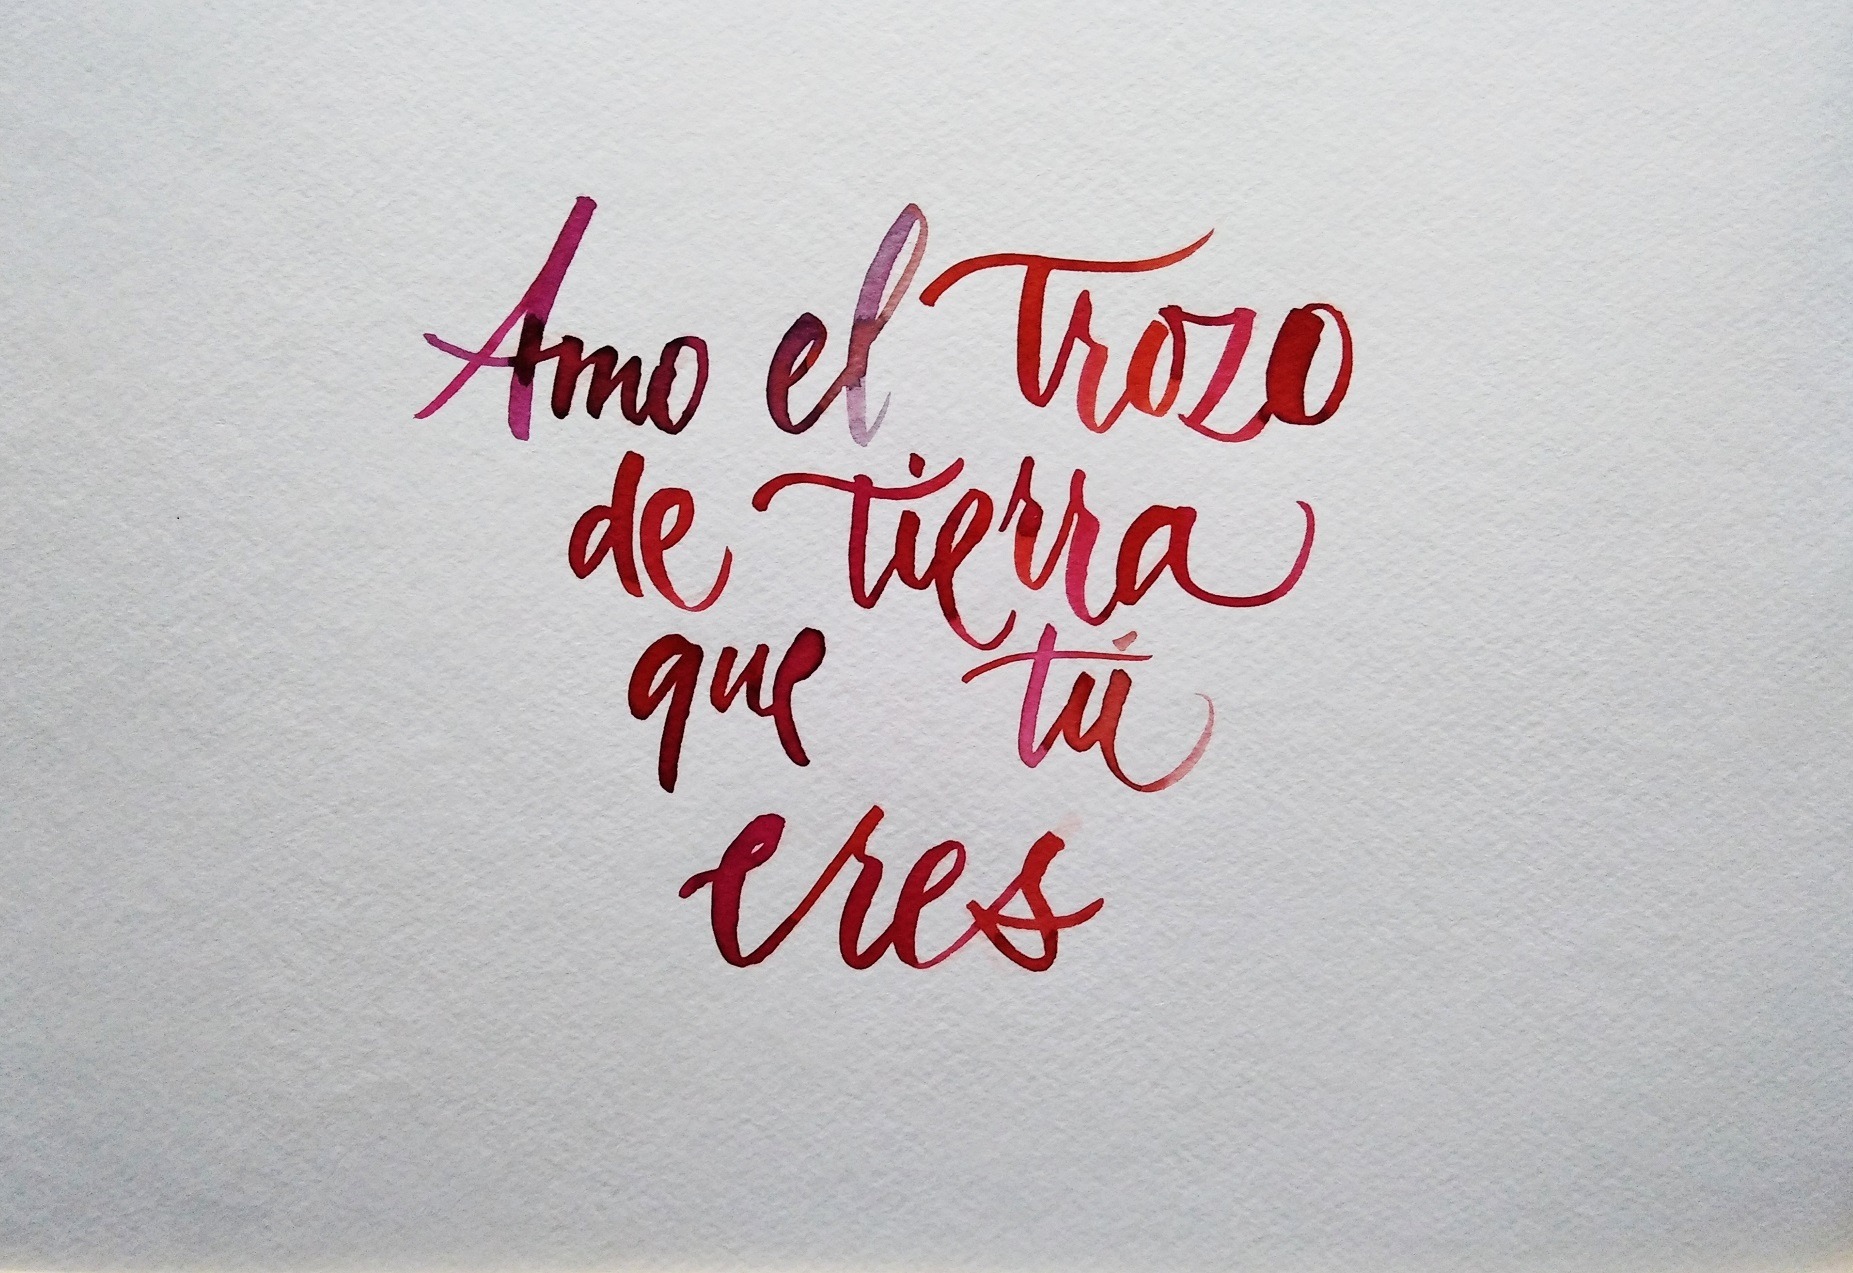 Amo el Trozo
de tierra
que tú
eres